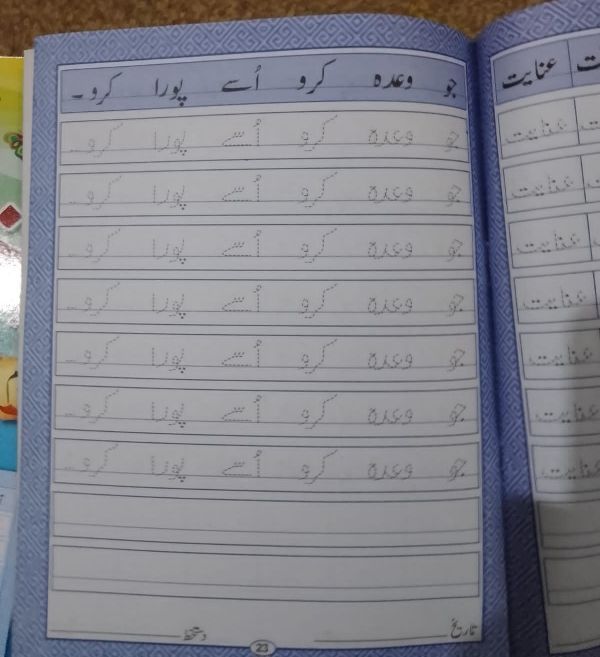 جو وعدہ کرو اُسے پورا کرو۔
جو وعدہ کرو اُسے پورا کرو۔
جو وعدہ کرو اُسے پورا کرو۔
جو وعدہ کرو اُسے پورا کرو۔
جو وعدہ کرو اُسے پورا کرو۔
جو وعدہ کرو اُسے پورا کرو۔
جو وعدہ کرو اُسے پورا کرو۔
جو وعدہ کرو اُسے پورا کرو۔
تاریخ دستخط
23
عنایت
عنایت
عنایت
عنایت
عنایت
عنایت
عنایت
عنایت